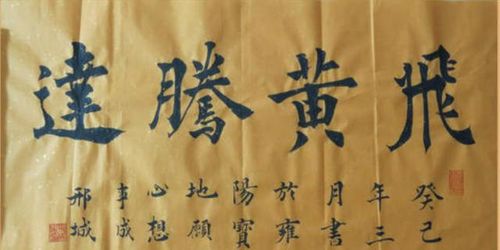 飛黃騰達
癸巳
年三
月書
於雍
陽寶
地願
心想
事成
邢城